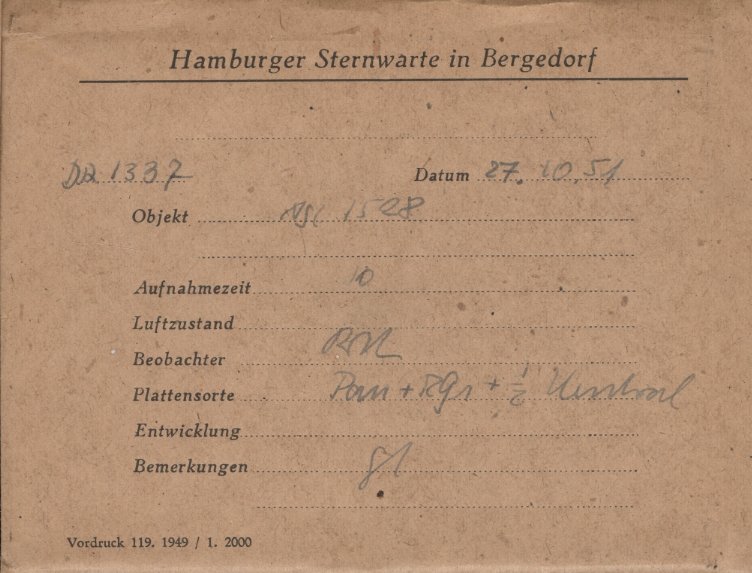 Hamburger Sternwarte in Bergedorf
1337 Datum 27. 10. 51
Objekt NGC 1528
Aufnahmezeit 10
Luftzustand
Beobachter
Plattensorte Pan + RG1 + 1/2 Neutral
Entwicklung
Bemerkungen
Vordruck 119. 1949 / 1. 2000